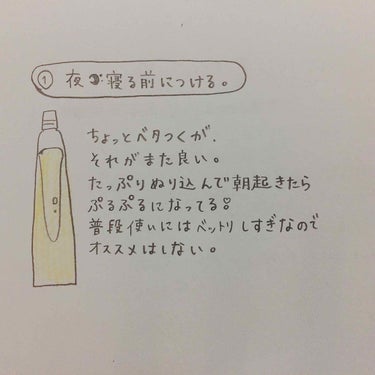 ① 夜寝る前につける。
ちょっとベタつくが、
それがまた良い。
たっぷりぬり込んで朝起きたら
ぷるぷるになってる!
普段使いにはベットリしすぎなので
オススメはしない。